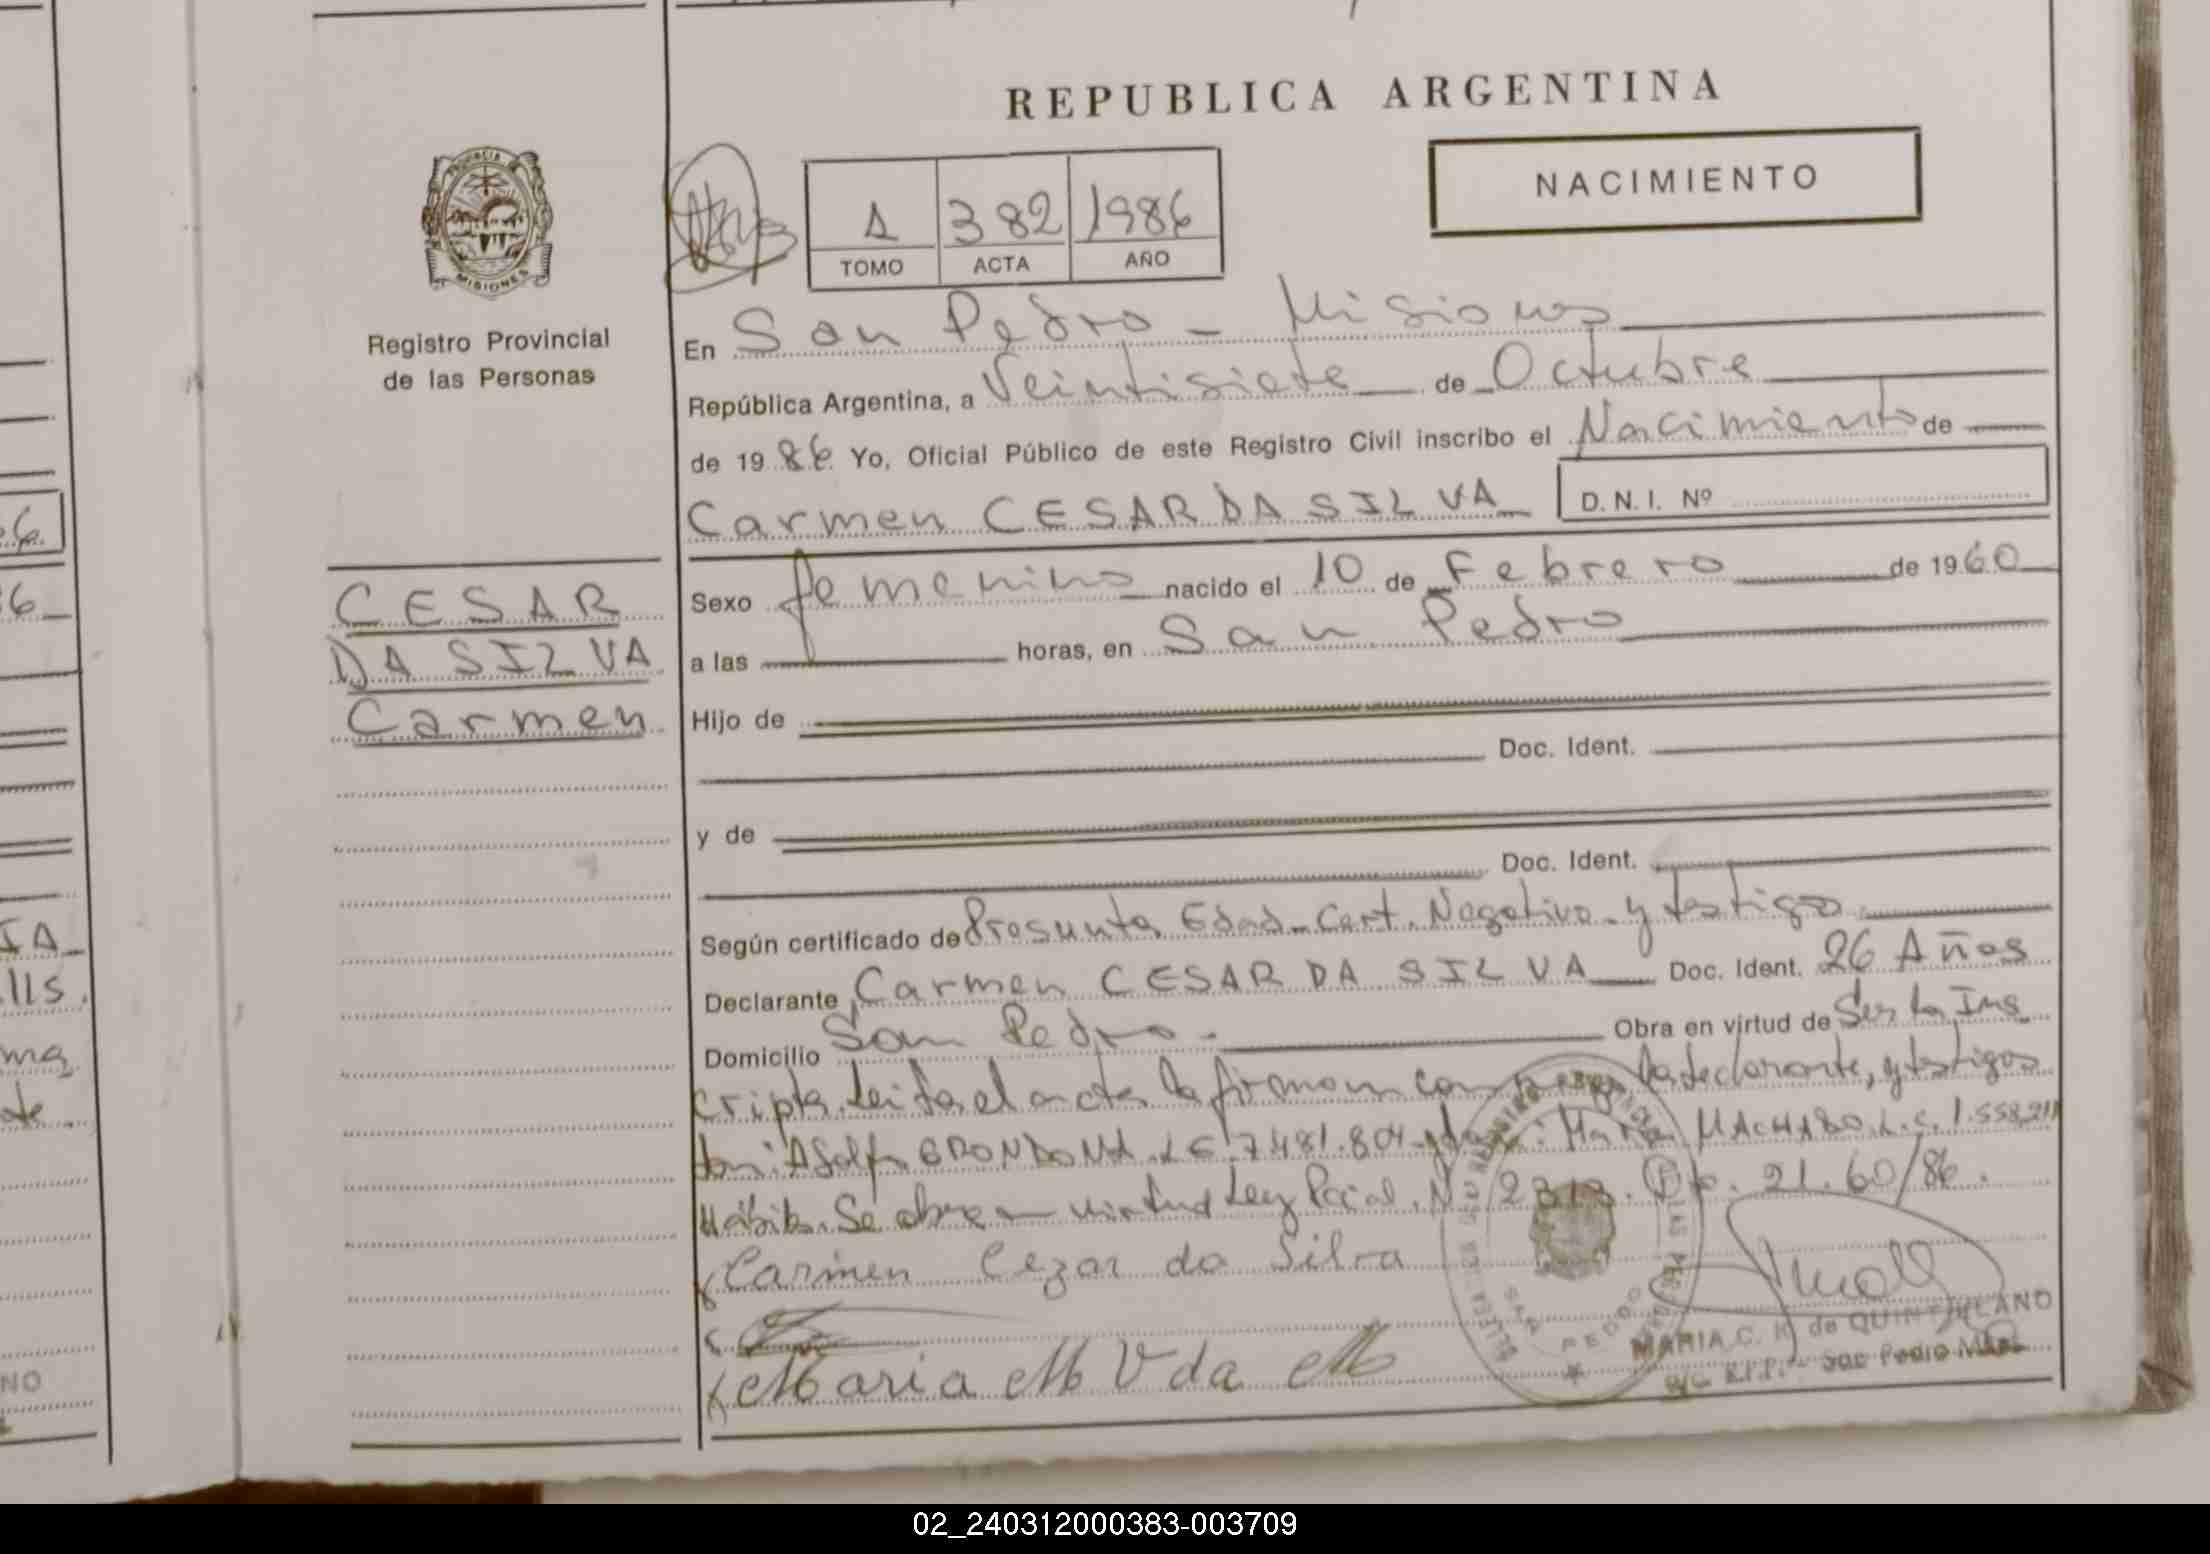 REPUBLICA ARGENTINA
NACIMIENTO
1 382 1986
TOMO ACTA AÑO
PROVINCIA
MISIONES
Registro Provincial
de las Personas
En San Pedro - Misiones
República Argentina, a Veintisiete de Octubre
de 1986 Yo, Oficial Público de este Registro Civil inscribo el Nacimiento de
Carmen CESAR DA SILVA D. N. I. Nº
CESAR
DA SILVA
Carmen
Sexo femenino nacido el 10 de Febrero de 1960
a las horas, en San Pedro
Hijo de
Doc. Ident.
y de
Doc. Ident.
Según certificado de Presunta Edad - Cert. Negativo - y testigo
Declarante Carmen CESAR DA SILVA Doc. Ident. 26 Años
Domicilio San Pedro - Obra en virtud de Ser la Ins
cripta. Leída el acta la firman con la declarante, y testigos
don: Adolfo BRONDONA L.E. 7.481.804 y : Maria MACHADO. L.C. 1.558.211
Hábiles. Se obra en virtud Ley Pcial. Nº 2313. Exp. 21.60/86.
Carmen Cezar da Silva
Maria M V da M
MARIA C. R. de QUINTILIANO
San Pedro
SAN PEDRO
NO
02_240312000383-003709